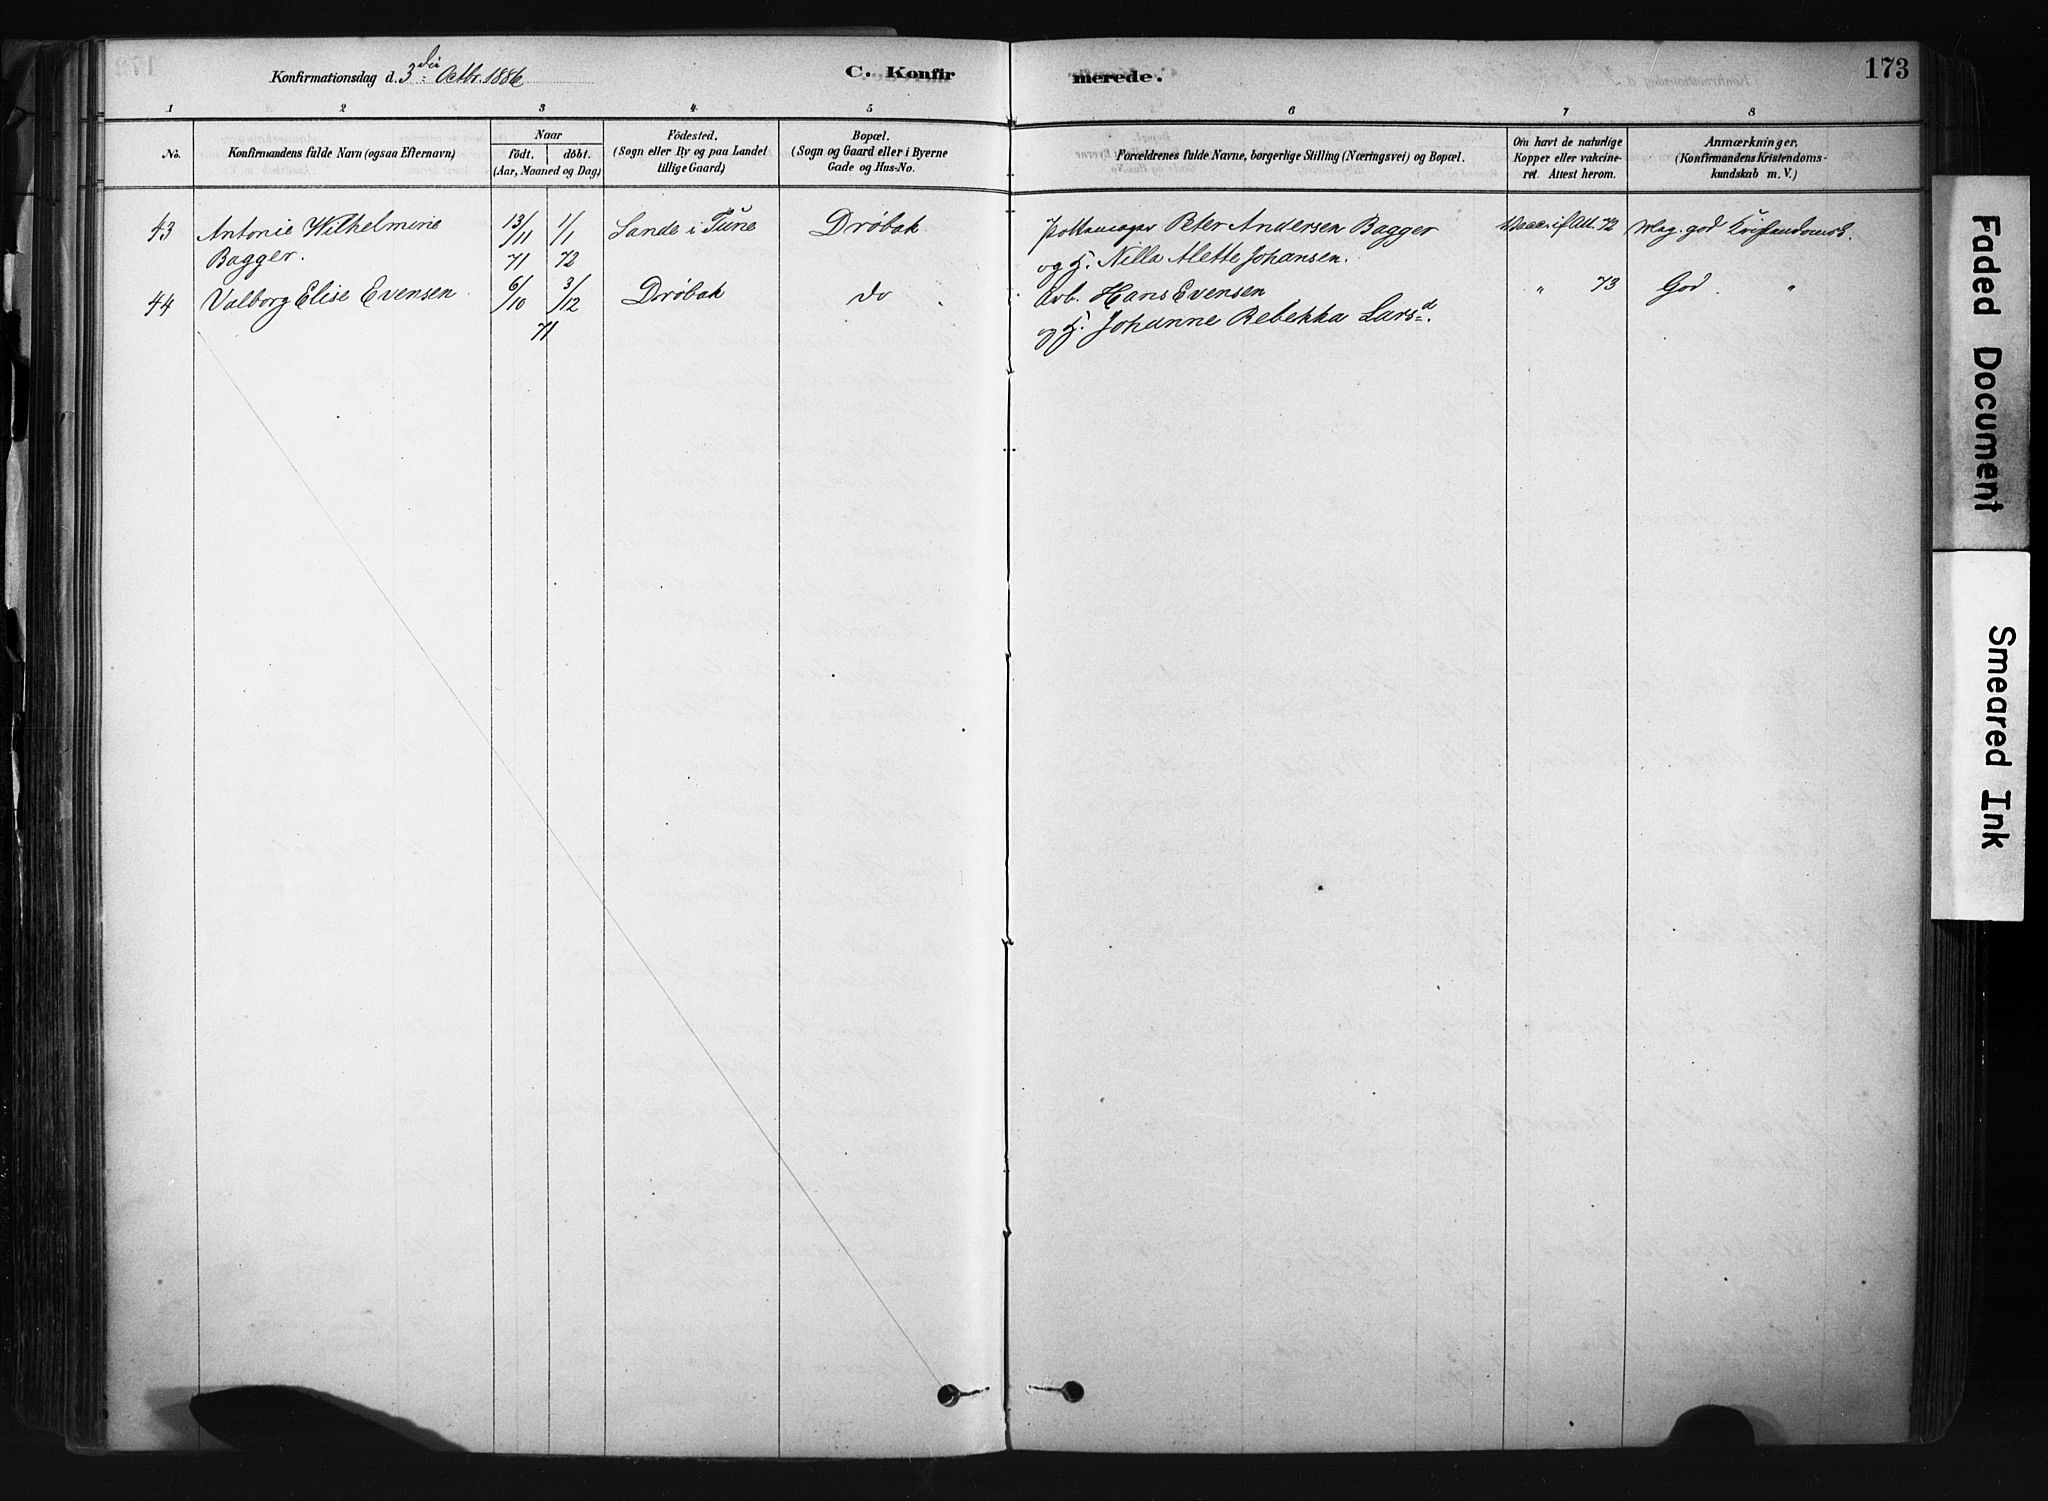 Konfirmationsdag d. 3die Octbr. 1886
C. Konfirmerede.
173
1 2 3 4 5 6 7 8
No.
Konfirmandens fulde Navn (ogsaa Efternavn)
Naar
födt. döbt.
(Aar, Maaned og Dag)
Födested.
(Sogn eller By og paa Landet
tillige Gaard)
Bopæl.
(Sogn og Gaard eller i Byerne
Gade og Hus-No.
Forældrenes fulde Navne, borgerlige Stilling (Næringsvei) og Bopæl.
Om havt de naturlige
Kopper eller vakcine-
ret. Attest herom.
Anmærkninger.
(Konfirmandens Kristendoms-
kundskab m. V.)
43 Antonie Wilhelmine 13/11 1/1 Sande i Tune Drøbak Pottemager Peter Andersen Bagger Vacc. if Att. 72 Meg. god Kristendomsk.
Bagger. 71 72 og H. Nilla Alette Johansen.
44 Valborg Elise Evensen 6/10 3/12 Drøbak do Arb. Hans Evensen " 73 God "
71 og H. Johanne Rebekka Larsd.
Faded Document
Smeared Ink